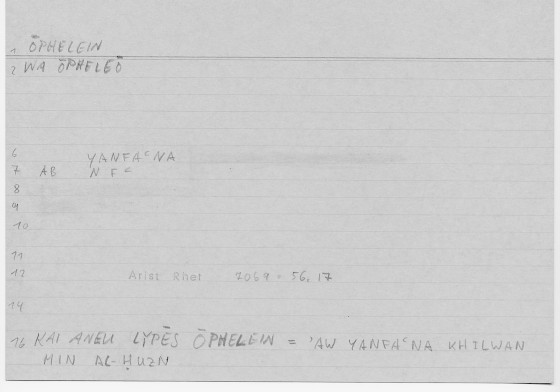 1 ŌPHELEIN
2 WA ŌPHELEŌ
6 YANFAʿNA
7 AB NFʿ
8
9
10
11
12 Arist Rhet 7069 = 56,17
14
16 KAI ANEU LYPĒS ŌPHELEIN = ʾAW YANFAʿNA KHILWAN
MIN AL-ḤUZN